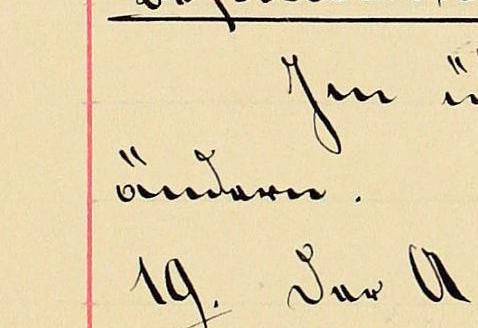 Im
ändern.
19. Der A